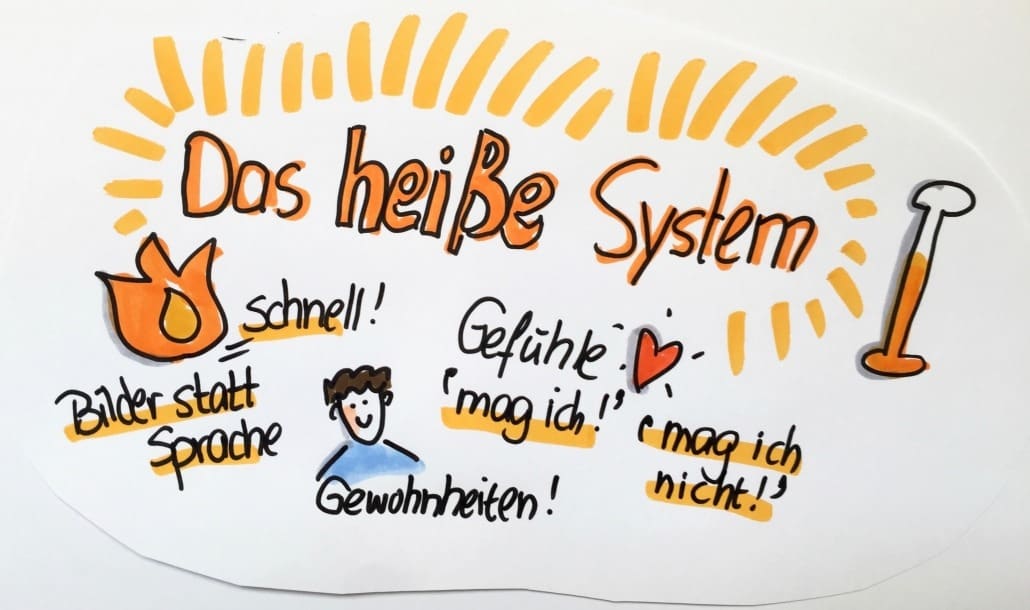 Das heiße System
schnell!
Bilder statt
Sprache
Gewohnheiten!
Gefühle
'mag ich!'
'mag ich
nicht!'